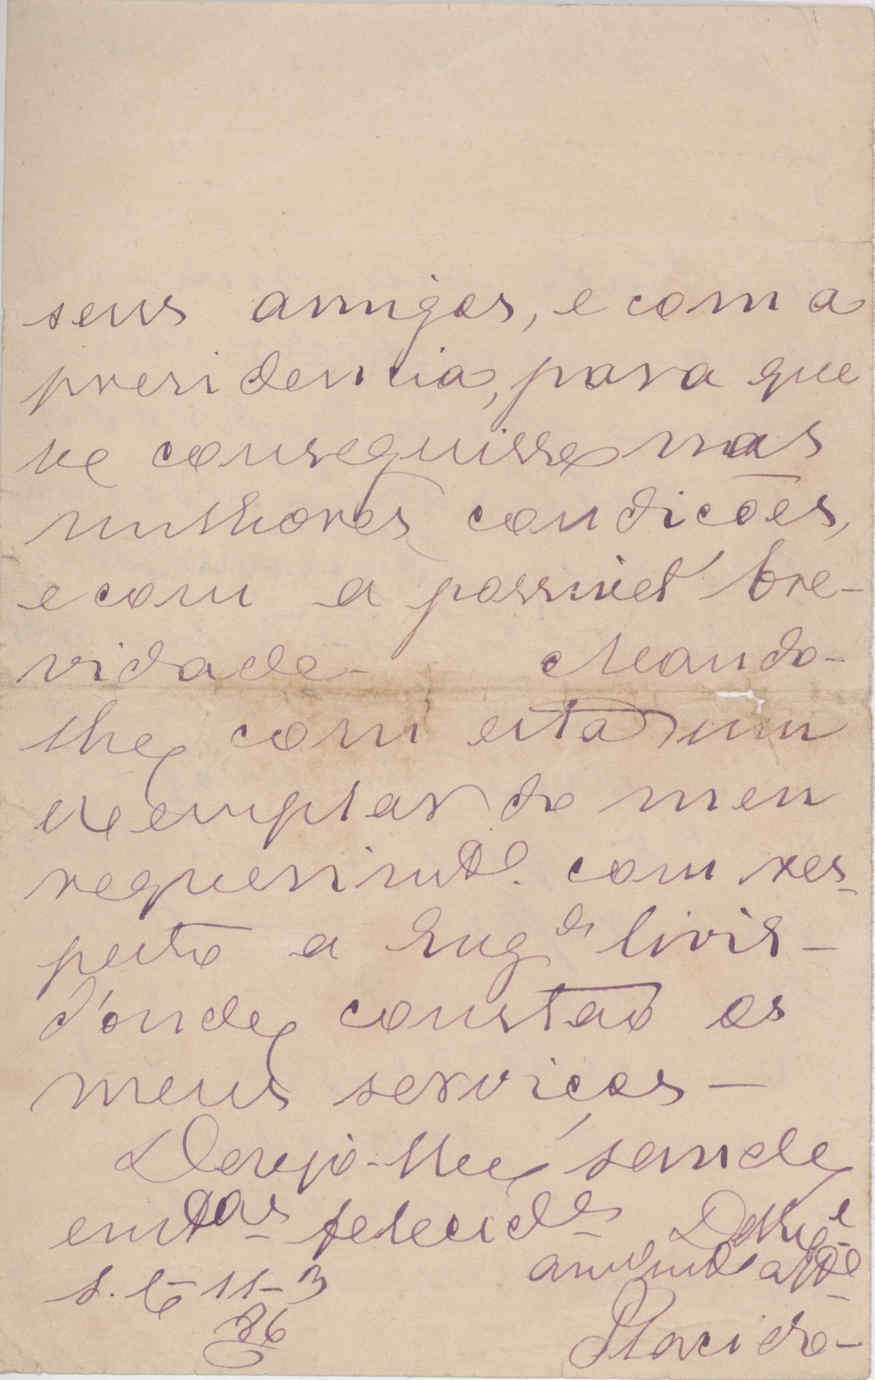 seus amigos, e com a
presidencia, para que
se conseguisse nas
milhores condicões,
e com a possivel bre-
vidade - Mando-
lhe com esta um
exemplar do meu
requerimto. com res-
peito a Eng
d'onde constão os
meus serviços -
Desejo-lhe saude
e mtas felecides
S. C 11-3
86
Placido-